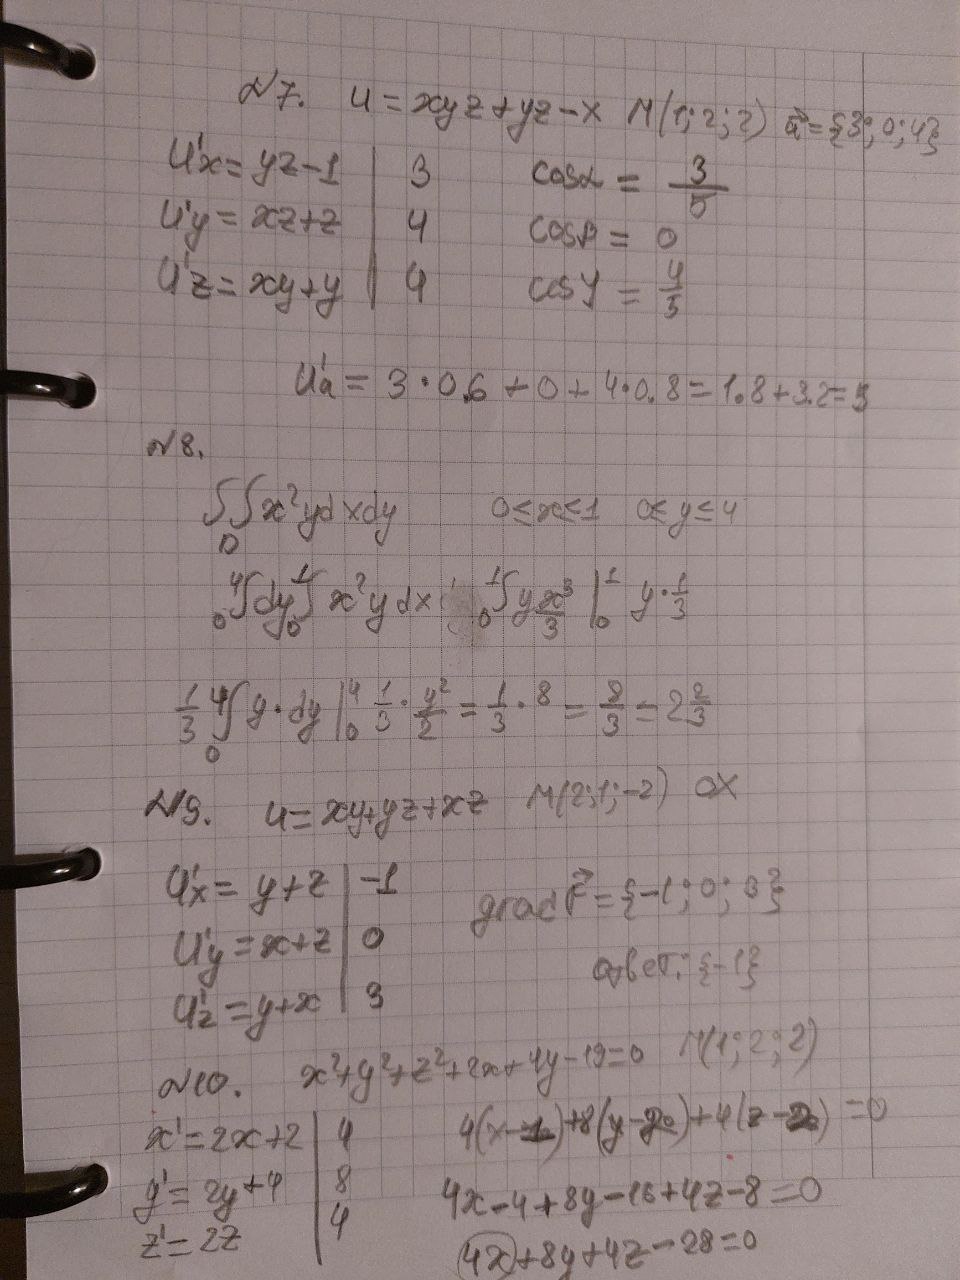 №7. u = xyz + yz - x M(1; 2; 2) a⃗ = {3; 0; 4}
u'x = yz - 1 | 3 cosα = 3/5
u'y = xz + z | 4 cosβ = 0
u'z = xy + y | 4 cosγ = 4/5
u'a = 3 · 0.6 + 0 + 4 · 0.8 = 1.8 + 3.2 = 5
№8.
∫∫_D x²y dx dy 0 ≤ x ≤ 1 0 ≤ y ≤ 4
₀⁴∫ dy ₀¹∫ x²y dx ₀¹∫ y x³/3 |₀¹ y · 1/3
1/3 ₀⁴∫ y · dy |₀⁴ 1/3 · y²/2 = 1/3 · 8 = 8/3 = 2 2/3
№9. u = xy + yz + xz M(2; 1; -2) OX
u'x = y + z | -1 grad F⃗ = {-1; 0; 3}
u'y = x + z | 0 ответ: {-1}
u'z = y + x | 3
№10. x² + y² + z² + 2x + 4y - 19 = 0 M(1; 2; 2)
x' = 2x + 2 | 4 4(x - 1) + 8(y - 2) + 4(z - 2) = 0
y' = 2y + 4 | 8 4x - 4 + 8y - 16 + 4z - 8 = 0
z' = 2z | 4 4x + 8y + 4z - 28 = 0